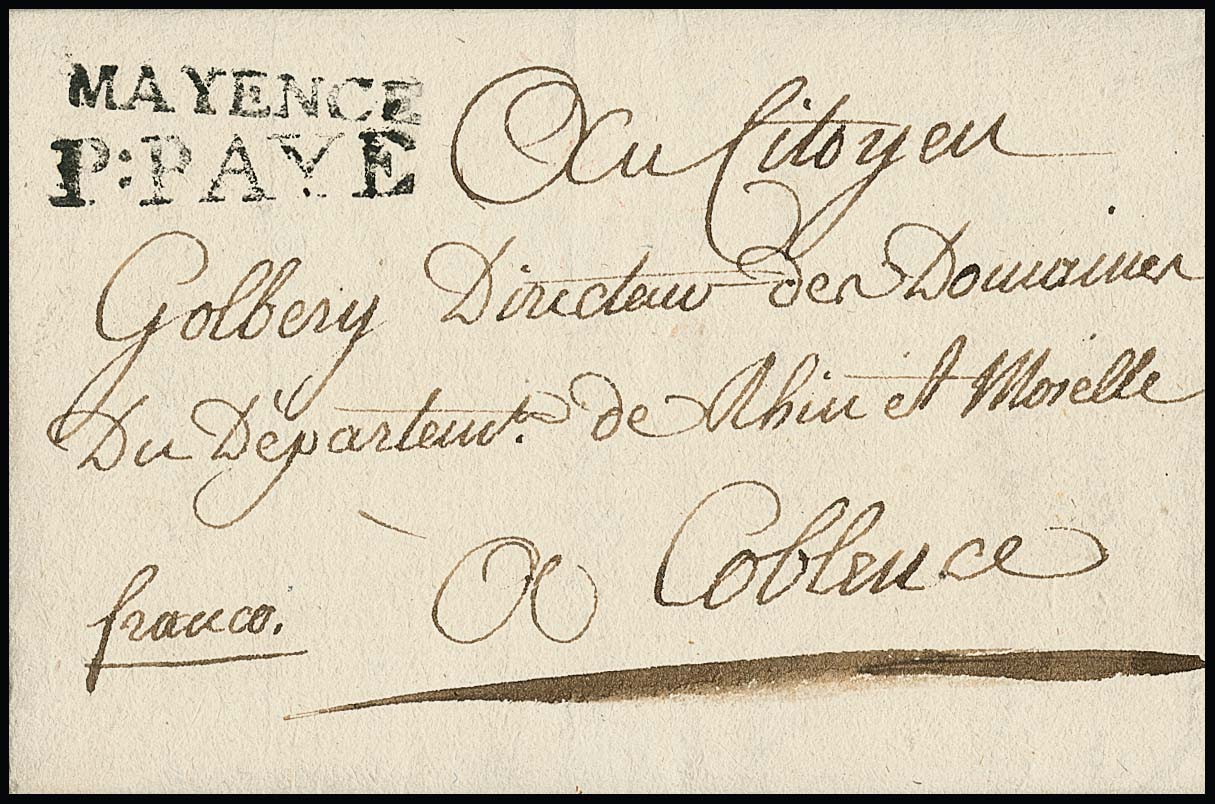 MAYENCE
P: PAYE
Au Citoyen
Golbery Directeur des Domaines
Du Départemt. de Rhin et Moselle
A Coblence
franco.